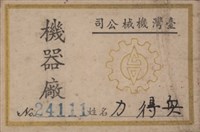 臺灣機械公司
機器廠
№24111 姓名 吳得力